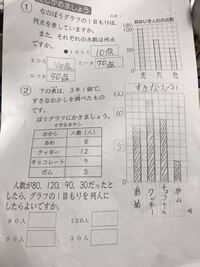 ① 右のぼうグラフの1目もりは、
何点を表していますか。
また、それぞれの点数は何点
ですか。
●1目もり 10点
まひろ 100点
70点
なつき 50点
おはじき入れの点数
100
50
0
② 下の表は、3年1組で、す
きなおかしを調べたもの
です。
ぼうグラフにかきましょう。
すきなおかし
おかし 人数(人)
あめ 8
クッキー 12
チョコレート 9
ガム 3
すきなおかし
(人)
10
5
0
あめ
クッキー
チョコレート
ガム
人数が80、120、90、30だったと
したら、グラフの1目もりを何人に
したらよいですか。
80人 120人
90人 30人